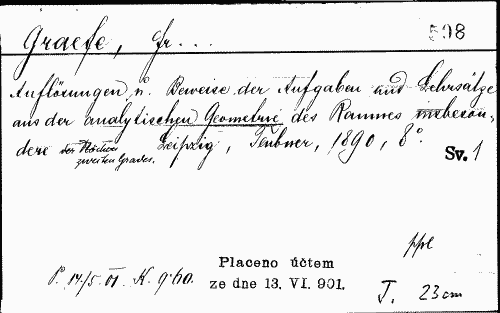 Graefe, Fr...
598
Auflösungen u. Beweise der Aufgaben und Lehrsätze
aus der analytischen Geometrie des Raumes insbeson-
dere der Flächen
zweiten Grades. Leipzig, Teubner, 1890, 8°.
Sv. 1
ppl
P. 14/5. 01 K. 9·60.
Placeno účtem
ze dne 13. VI. 901.
J. 23 cm